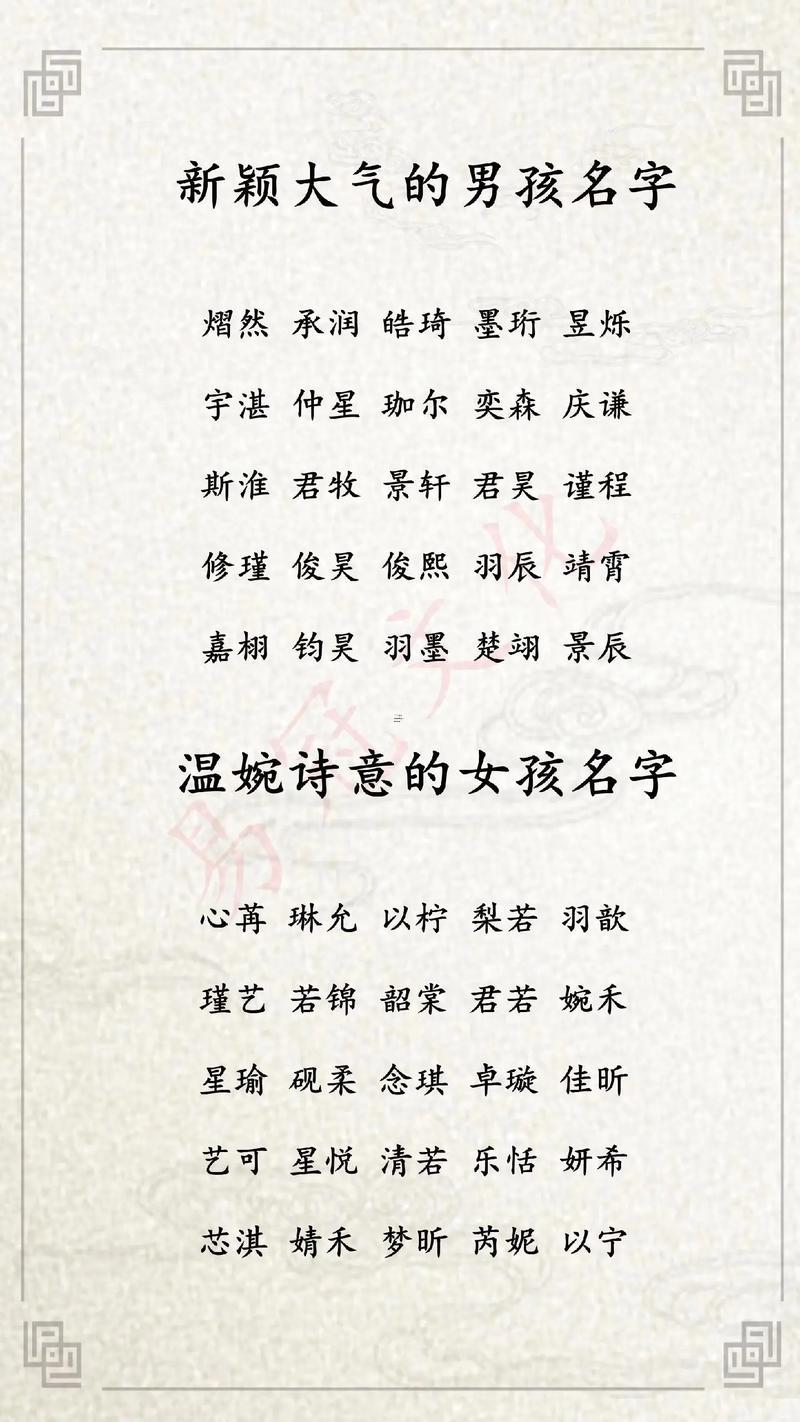 新颖大气的男孩名字
熠然 承润 皓琦 墨珩 昱烁
宇湛 仲星 珈尔 奕森 庆谦
斯淮 君牧 景轩 君昊 谨程
修瑾 俊昊 俊熙 羽辰 靖霄
嘉栩 钧昊 羽墨 楚翊 景辰
温婉诗意的女孩名字
心苒 琳允 以柠 梨若 羽歆
瑾艺 若锦 韶棠 君若 婉禾
星瑜 砚柔 念琪 卓璇 佳昕
艺可 星悦 清若 乐恬 妍希
芯淇 婧禾 梦昕 芮妮 以宁